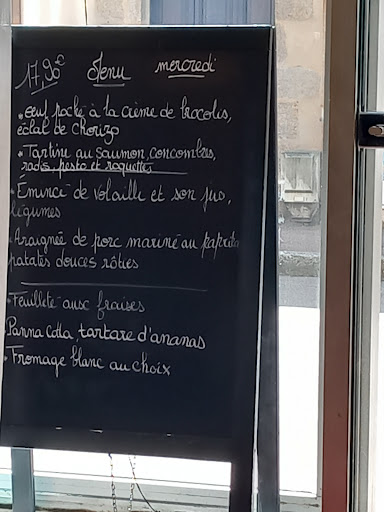 17,90€ Menu mercredi
• oeuf poché à la crème de brocolis,
éclat de chorizo
• Tartine au saumon, concombres,
radis, pesto et roquette
• Emincé de volaille et son jus,
légumes
• Araignée de porc mariné au paprika
patates douces rôties
• Feuilleté aux fraises
• Panna cotta, tartare d'ananas
• Fromage blanc au choix